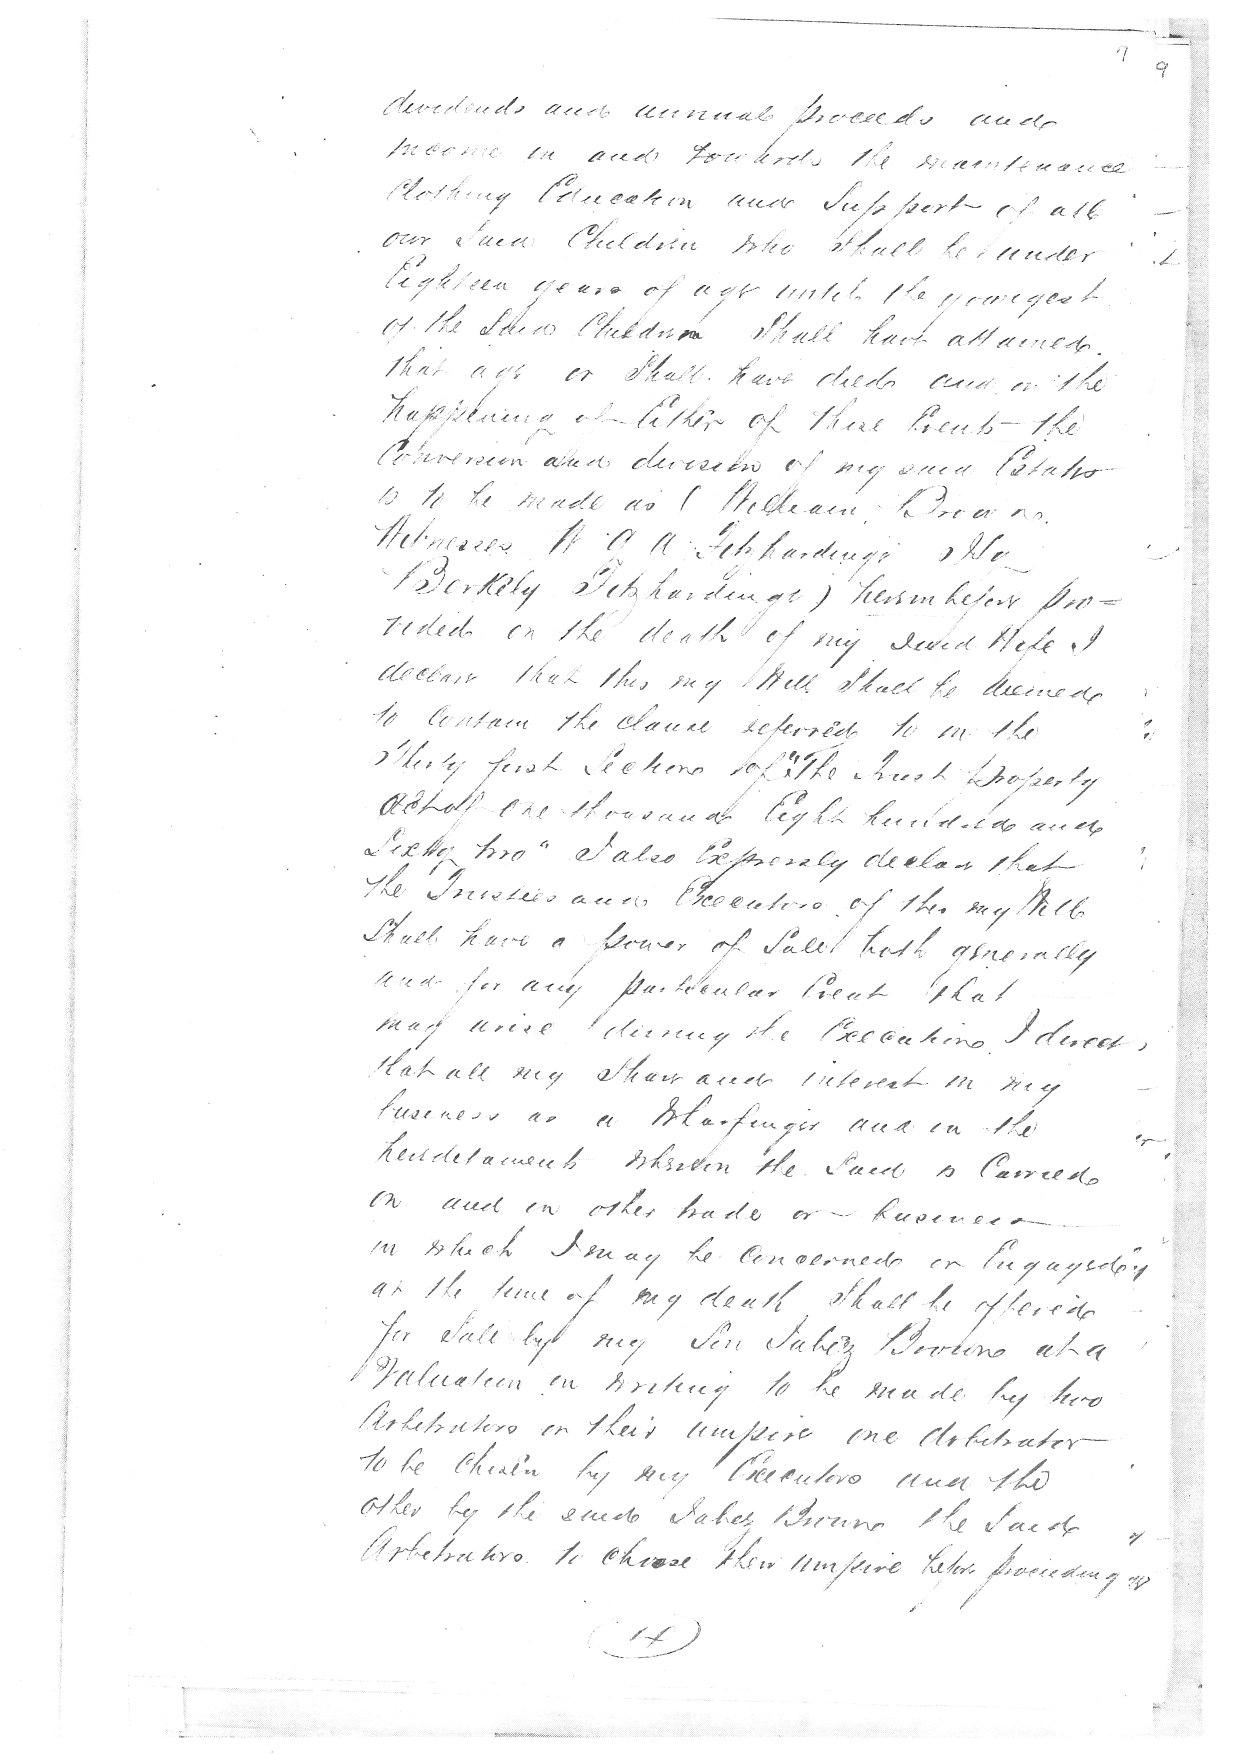 9 9
dividends and annual proceeds and
income in and towards the maintenance
Clothing Education and Support of all
our Said Children who Shall be under
Eighteen years of age until the youngest
of the Said Children Shall have attained
that age or Shall have died and on the
happening of Either of these Events the
Conversion and division of my said Estate
is to be made as ( William Browne
Witnesses W G A Fitzhardinge
Berkely Fitzhardinge ) hereinbefore pro=
vided on the death of my said Wife I
declare that this my Will Shall be deemed
to Contain the clause referred to in the
Thirty first Section of "The Trust Property
Act of One thousand Eight hundred and
Sixty two" I also Expressly declare that
the Trustees and Executors of this my Will
Shall have a power of Sale both generally
and for any particular Event that
may arise during the Execution I direct
that all my Share and interest in my
business as a Wharfinger and in the
hereditaments wherein the Said is Carried
on and in other trade or business
in which I may be Concerned or Engaged in
at the time of my death Shall be offered
for Sale by my Son Jabez Browne at a
Valuation in writing to be made by two
Arbitrators or their umpire one Arbitrator
to be Chosen by my Executors and the
other by the said Jabez Browne the Said
Arbitrators to choose their umpire before proceeding
14